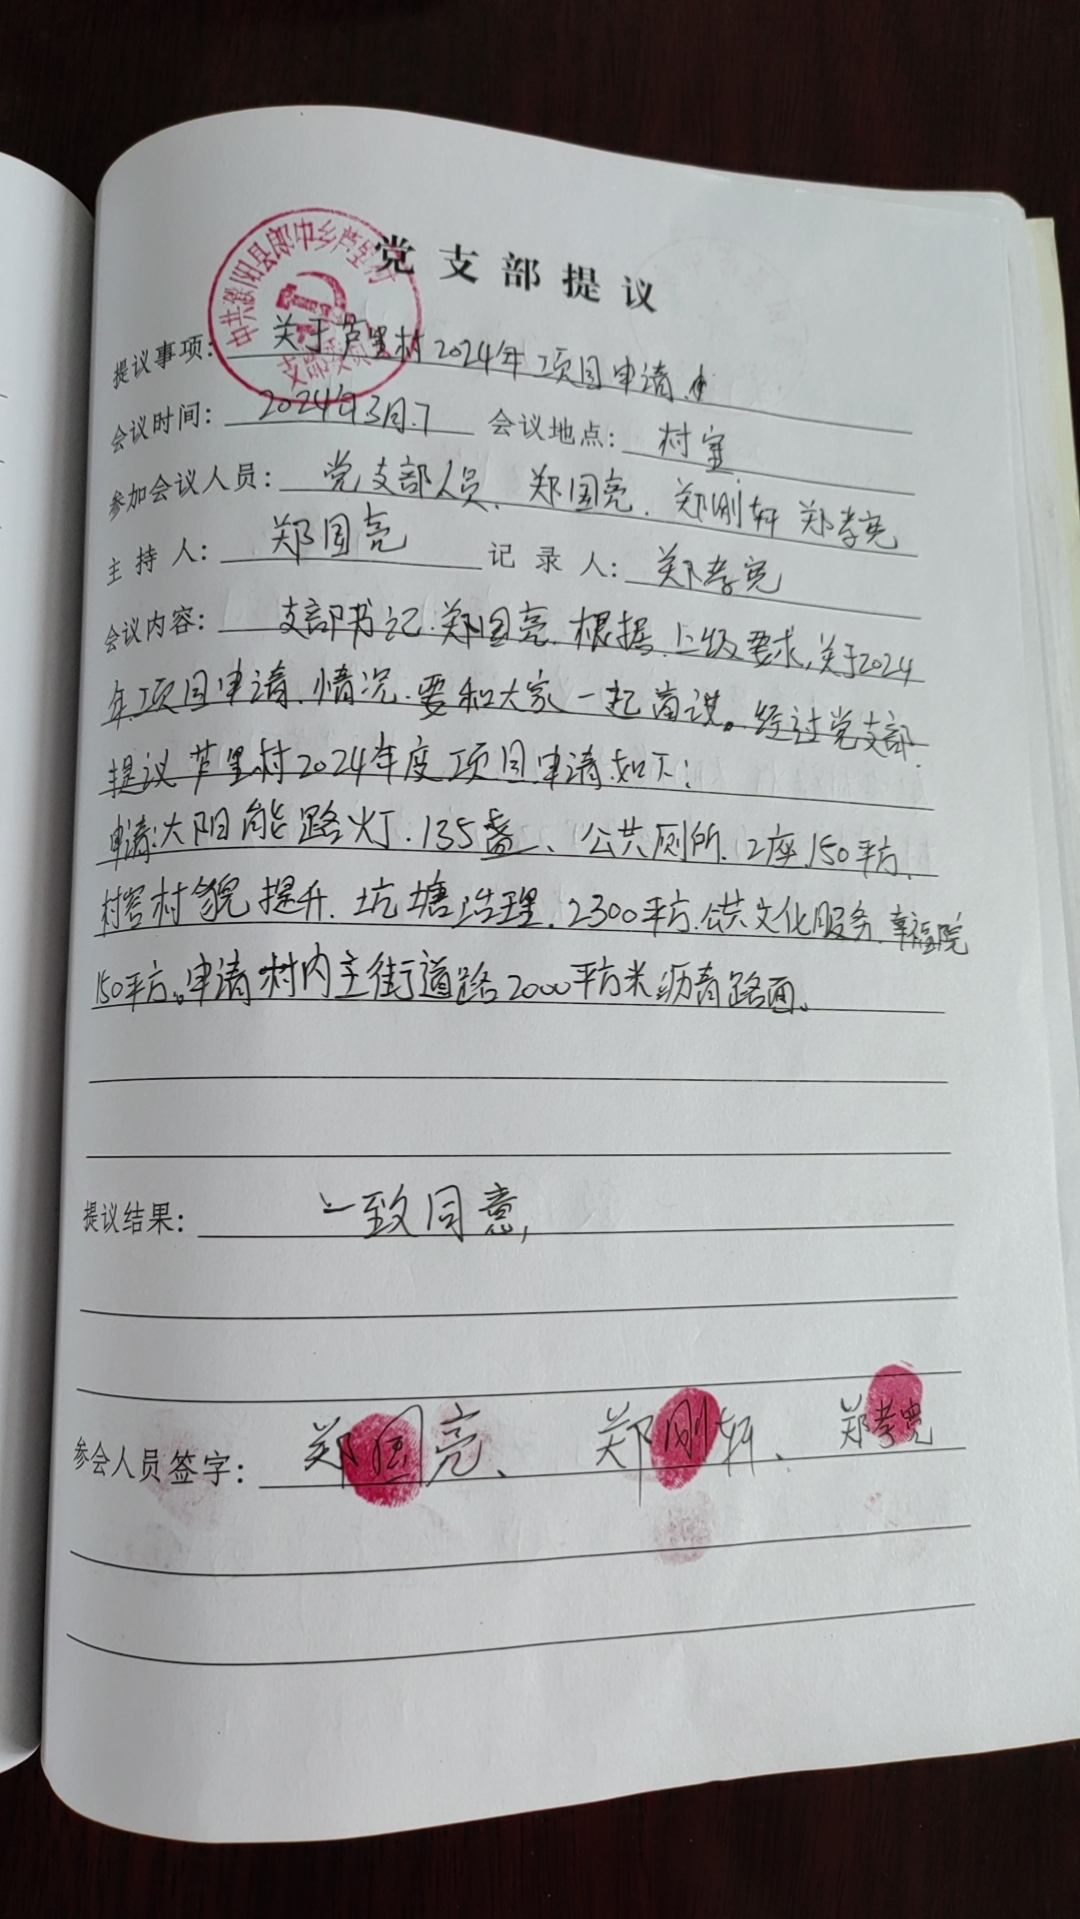 党支部提议
中共濮阳县郎中乡芦里村
支部委员
提议事项：关于芦里村2024年项目申请
会议时间：2024年3月.7 会议地点：村室
参加会议人员：党支部人员、郑国亮、郑刚轩 郑孝宪
主持人：郑国亮 记录人：郑孝宪
会议内容：支部书记.郑国亮.根据.上级要求，关于2024
年.项目申请.情况.要和大家一起商议。经过党支部
提议芦里村2024年度项目申请如下：
申请：太阳能路灯.135盏、公共厕所.2座.150平方.
村容村貌提升.坑塘治理.2300平方.公共文化服务.幸福院
150平方。申请村内主街道路2000平方米.沥青路面。
提议结果：一致同意，
参会人员签字：郑国亮、郑刚轩、郑孝宪